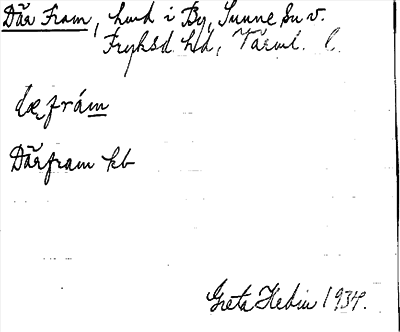 Där Fram, hmd i By, Sunne Sn v.
Fryksd. hd, Värml. l.
dæ̨frám
Därfram kb
Greta Hedin 1934.